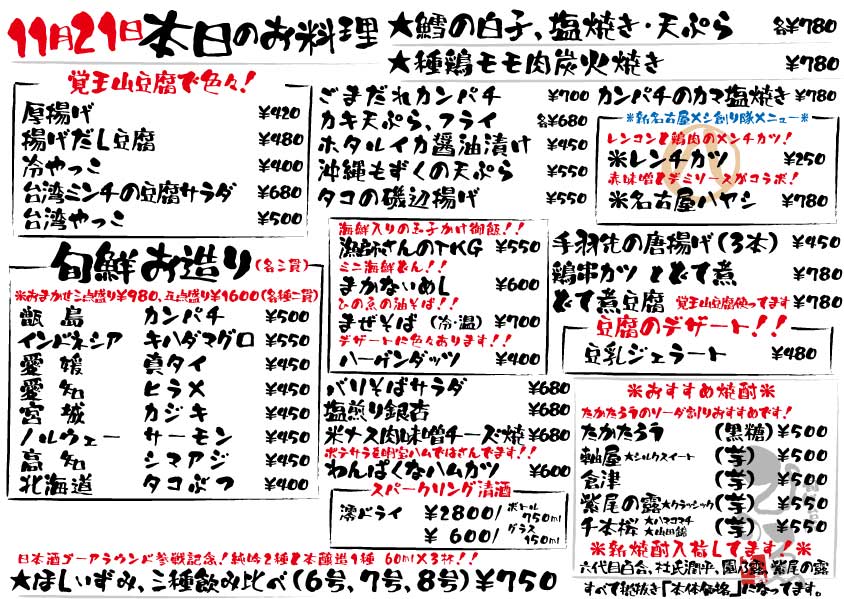 11月21日 本日のお料理
★鱈の白子、塩焼き・天ぷら 各¥780
★種鶏モモ肉炭火焼き ¥780
覚王山豆腐で色々!
厚揚げ ¥420
揚げだし豆腐 ¥480
冷やっこ ¥400
台湾ミンチの豆腐サラダ ¥680
台湾やっこ ¥500
ごまだれカンパチ ¥700
カキ天ぷら、フライ 各¥680
ホタルイカ醤油漬け ¥450
沖縄もずくの天ぷら ¥550
タコの磯辺揚げ ¥550
カンパチのカマ塩焼き ¥780
※新名古屋メシ創り隊メニュー※
レンコンと鶏肉のメンチカツ!
米レンチカツ ¥250
赤味噌とデミソースがコラボ!
米名古屋ハヤシ ¥780
旬鮮お造り(各三貫)
※おまかせ三点盛り¥980、五点盛り¥1600(各種二貫)
甑島 カンパチ ¥500
インドネシア キハダマグロ ¥550
愛媛 真タイ ¥450
愛知 ヒラメ ¥450
宮城 カジキ ¥450
ノルウェー サーモン ¥450
高知 シマアジ ¥450
北海道 タコぶつ ¥400
海鮮入りの玉子かけ御飯!!
漁師さんのTKG ¥550
ミニ海鮮どん!!
まかないめし ¥600
ひの魚の油そば!!
まぜそば (冷・温) ¥700
デザートに色々あります!!
ハーゲンダッツ ¥400
手羽先の唐揚げ(3本) ¥450
鶏串カツ とどて煮 ¥780
どて煮豆腐 覚王山豆腐使ってます ¥780
豆腐のデザート!!
豆乳ジェラート ¥480
バリそばサラダ ¥680
塩煎り銀杏 ¥680
米ナス肉味噌チーズ焼 ¥680
ポテサラを明宝ハムではさんでます!!
わんぱくなハムカツ ¥600
スパークリング清酒
澪ドライ ¥2800/ボトル750ml
¥600/グラス150ml
※おすすめ焼酎※
たかたろうのソーダ割りおすすめです!
たかたろう (黒糖) ¥500
軸屋 ★シルクスイート (芋) ¥500
倉津 (芋) ¥500
紫尾の露 ★クラッシック (芋) ¥550
千本桜 ★ハマコマチ ★山田錦 (芋) ¥550
※新焼酎入荷してます!※
六代目百合、杜氏潤平、園乃露、紫尾の露
すべて税抜き「本体価格」になってます。
日本酒ゴーアラウンド参戦記念!純吟2種と本醸造1種 60ml×3杯!!
★ほしいずみ、三種飲み比べ(6号、7号、8号) ¥750